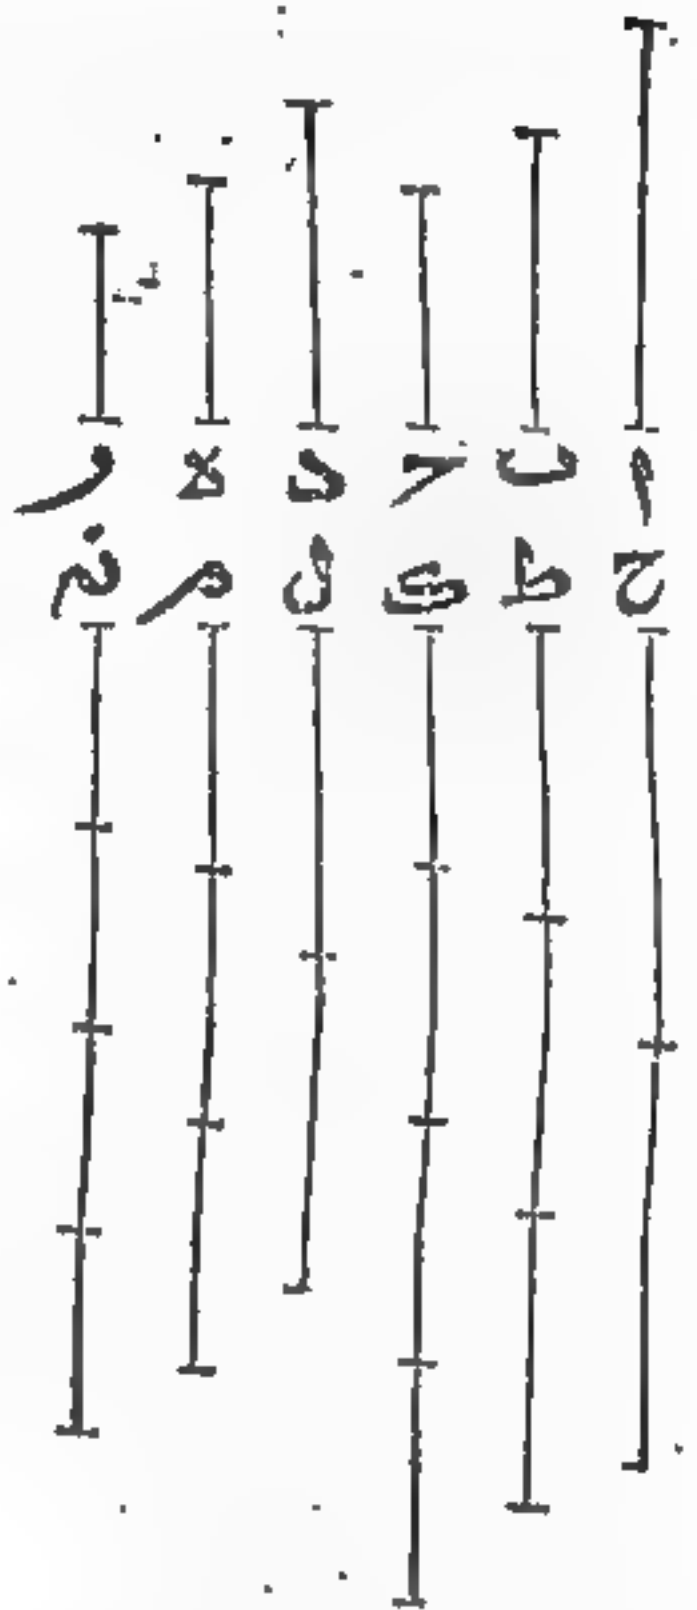 ا ب ح د ه ر
ح ط ك ل م ن